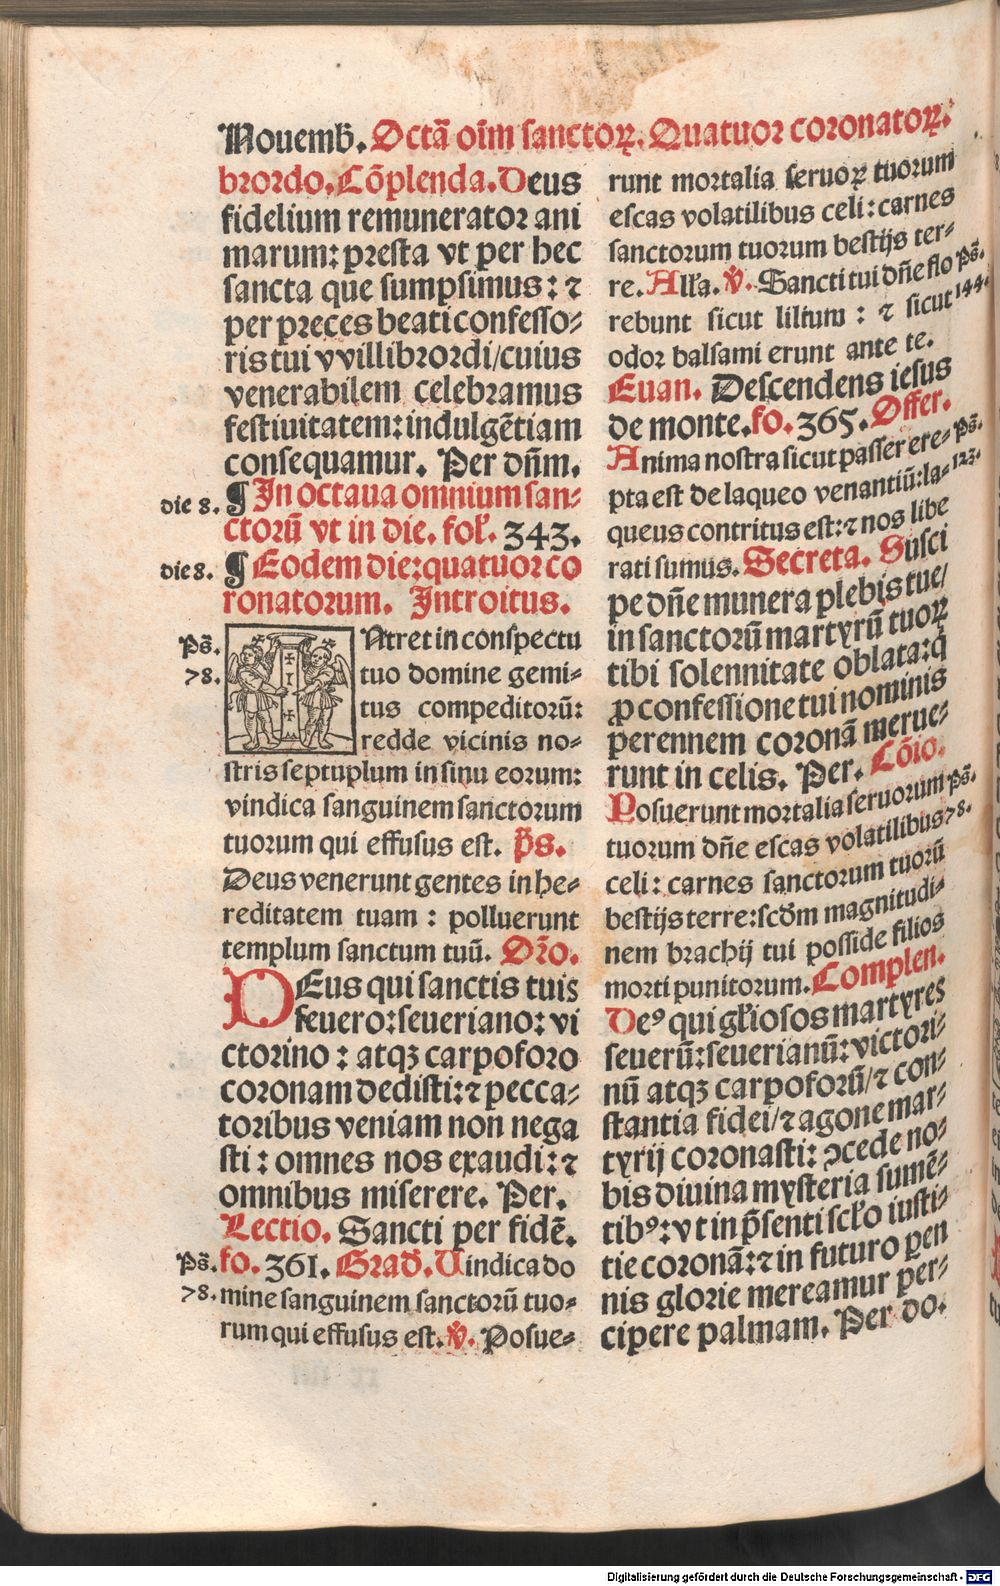 Nouemb̄. Octā oīm sanctoꝝ. Quatuor coronatoꝝ.
brordo. Cōplenda. Deus
fidelium remunerator ani
marum: presta vt per hec
sancta que sumpsimus: ⁊
per preces beati confesso⸗
ris tui vvillibrordi/cuius
venerabilem celebramus
festiuitatem: indulgētiam
consequamur. Per dn̄m.
die 8. ¶ In octaua omnium san⸗
ctorū vt in die. fol̄. 343.
die 8. ¶ Eodem die: quatuor co
ronatorum. Introitus.
Ps̄. 78. Ntret in conspectu
tuo domine gemi⸗
tus compeditorū:
redde vicinis no⸗
stris septuplum in sinu eorum:
vindica sanguinem sanctorum
tuorum qui effusus est. p̄s.
Deus venerunt gentes in he⸗
reditatem tuam : polluerunt
templum sanctum tuū. Or̄o.
DEus qui sanctis tuis
seuero: seueriano: vi
ctorino : atqꝫ carpoforo
coronam dedisti: ⁊ pecca⸗
toribus veniam non nega
sti : omnes nos exaudi: ⁊
omnibus miserere. Per.
Lectio. Sancti per fidē.
fo. 361. Grad̄. Uindica do
Ps̄. 78. mine sanguinem sanctorū tuo⸗
rum qui effusus est. v̄. Posue⸗
runt mortalia seruoꝝ tuorum
escas volatilibus celi: carnes
sanctorum tuorum bestijs ter⸗
re. All̄a. v̄. Sancti tui dn̄e flo Ps̄. 144.
rebunt sicut lilium : ⁊ sicut
odor balsami erunt ante te.
Euan. Descendens iesus
de monte. fo. 365. Offer.
Anima nostra sicut passer ere⸗ Ps̄. 123.
pta est de laqueo venantiū: la⸗
queus contritus est: ⁊ nos libe
rati sumus. Secreta. Susci
pe dn̄e munera plebis tue/
in sanctorū martyrū tuoꝝ
tibi solennitate oblata: q̇
ꝓ confessione tui nominis
perennem coronā merue⸗
runt in celis. Per. Cōio.
Posuerunt mortalia seruorum Ps̄. 78.
tuorum dn̄e escas volatilibus
celi : carnes sanctorum tuorū
bestijs terre: scd̄m magnitudi⸗
nem brachij tui posside filios
morti punitorum. Complen.
Deꝰ qui gl̄iosos martyres
seuerū: seuerianū: victori⸗
nū atqꝫ carpoforū/⁊ con⸗
stantia fidei/⁊ agone mar⸗
tyrij coronasti: ꝯcede no⸗
bis diuina mysteria sumē⸗
tibꝰ: vt in p̄senti scl̄o iusti⸗
tie coronā: ⁊ in futuro ꝑen
nis glorie mereamur per⸗
cipere palmam. Per do.
Digitalisierung gefördert durch die Deutsche Forschungsgemeinschaft - DFG